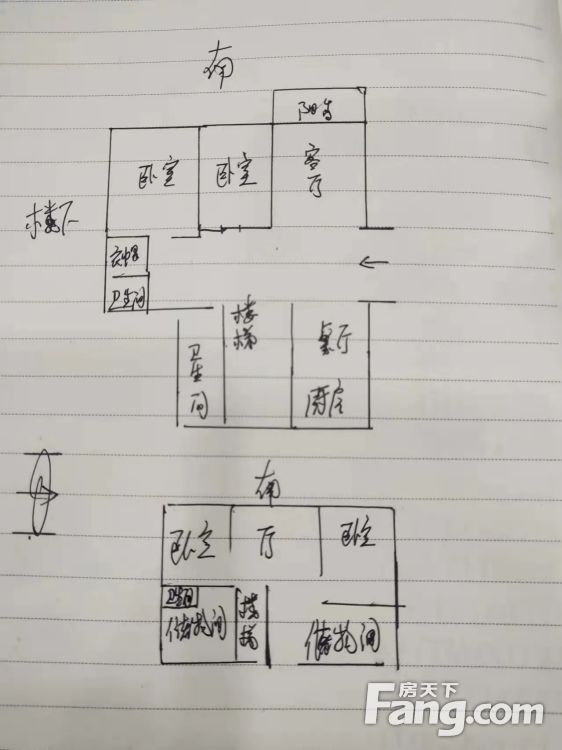 南
阳台
卧室
卧室
客厅
楼下
衣帽间
卫生间
楼梯
卫生间
餐厅
厨房
南
卧室
厅
卧室
卫生间
储物间
楼梯
储物间
房天下
Fang.com